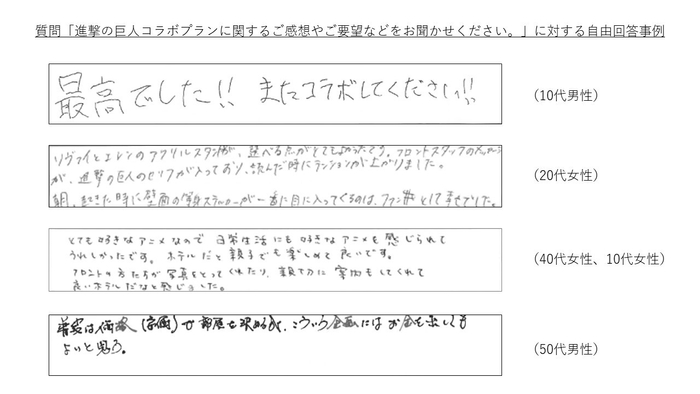 質問「進撃の巨人コラボプランに関するご感想やご要望などをお聞かせください。」に対する自由回答事例
最高でした!! またコラボしてください!!
(10代男性)
リヴァイとエレンのアクリルスタンドが、選べるのがとてもよかったです。フロントスタッフの
が、進撃の巨人のセリフが入っており、読んだ時にテンションが上がりました。
朝、起きた時に壁面の ステッカーが一番に目に入ってくるのは、ファンとして幸せでした。
(20代女性)
とても好きなアニメなので 日常生活にも好きなアニメを感じられて
うれしかったです。ホテルだと親子でも楽しめて良いです。
フロントの方たちが写真をとってくれたり、親切に案内もしてくれて
良いホテルだなと感じました。
(40代女性、10代女性)
普段は価格 で部屋を決めるが、こういう企画にはお金を出しても
よいと思う。
(50代男性)